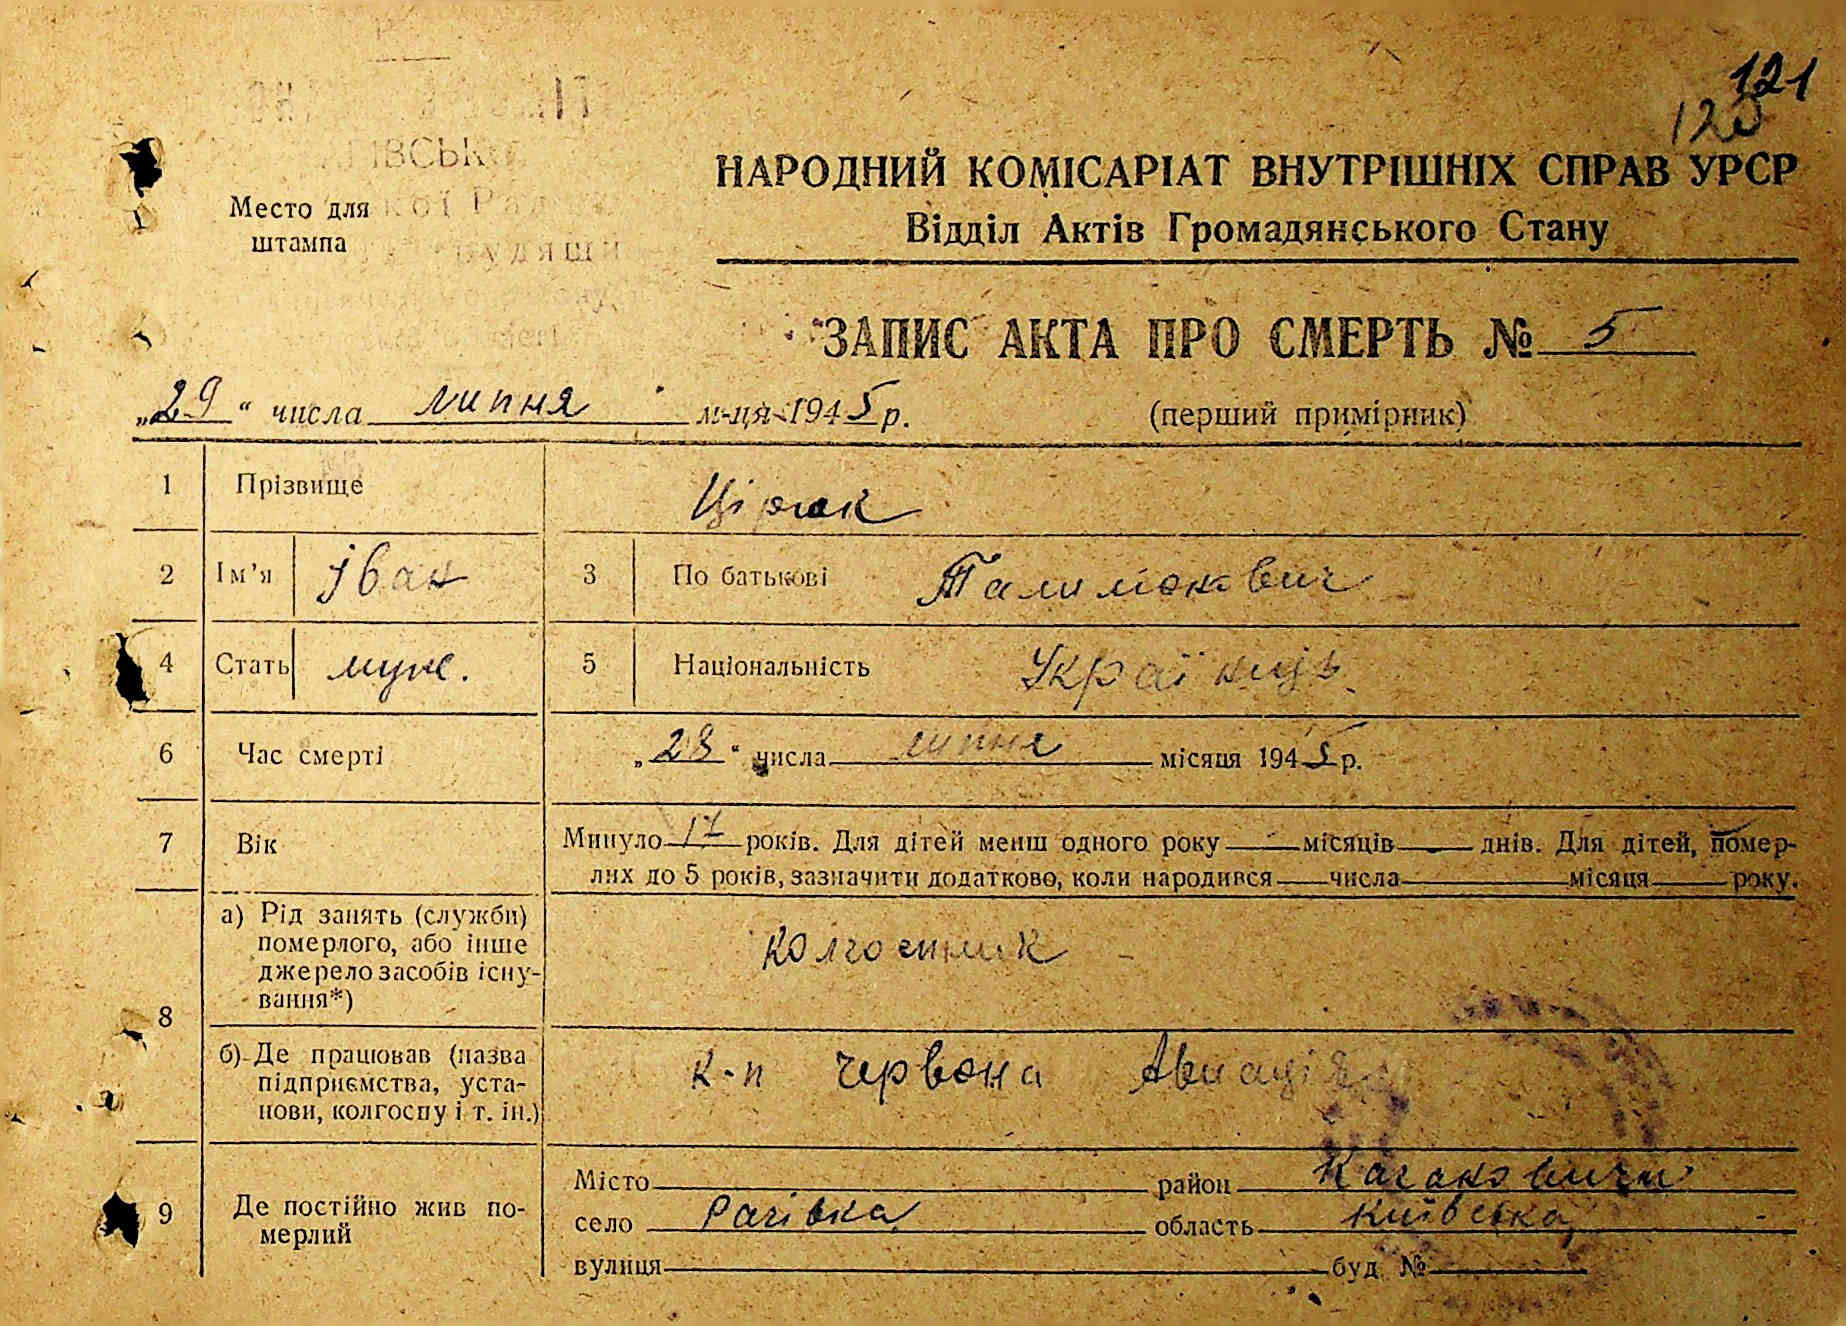 121
120
Место для
штампа
НАРОДНИЙ КОМІСАРІАТ ВНУТРІШНІХ СПРАВ УРСР
Відділ Актів Громадянського Стану
ЗАПИС АКТА ПРО СМЕРТЬ № 5
„29“ числа липня м-ця 1945 р.
(перший примірник)
1 Прізвище
2 Ім’я Іван 3 По батькові
4 Стать муж. 5 Національність Українць
6 Час смерті „28“ числа липня місяця 1945 р.
7 Вік Минуло 17 років. Для дітей менш одного року — місяців — днів. Для дітей, помер-
лих до 5 років, зазначити додатково, коли народився числа місяця року.
8 а) Рід занять (служби)
померлого, або інше
джерело засобів існу-
вання*)
колгоспник
б) Де працював (назва
підприємства, уста-
нови, колгоспу і т. ін.)
к-п червона Авиація
9 Де постійно жив по-
мерлий
Місто район Кагановичи
село Рагівка область Київська
вулиця буд. №